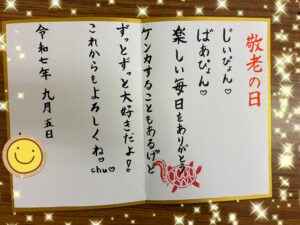 敬老の日
じぃぴょん♡
ばあぴょん♡
楽しい毎日をありがとう
ケンカすることもあるけど
ずっとずっと大好きだよ！
これからもよろしくね♡
chu♡
令和七年 九月五日